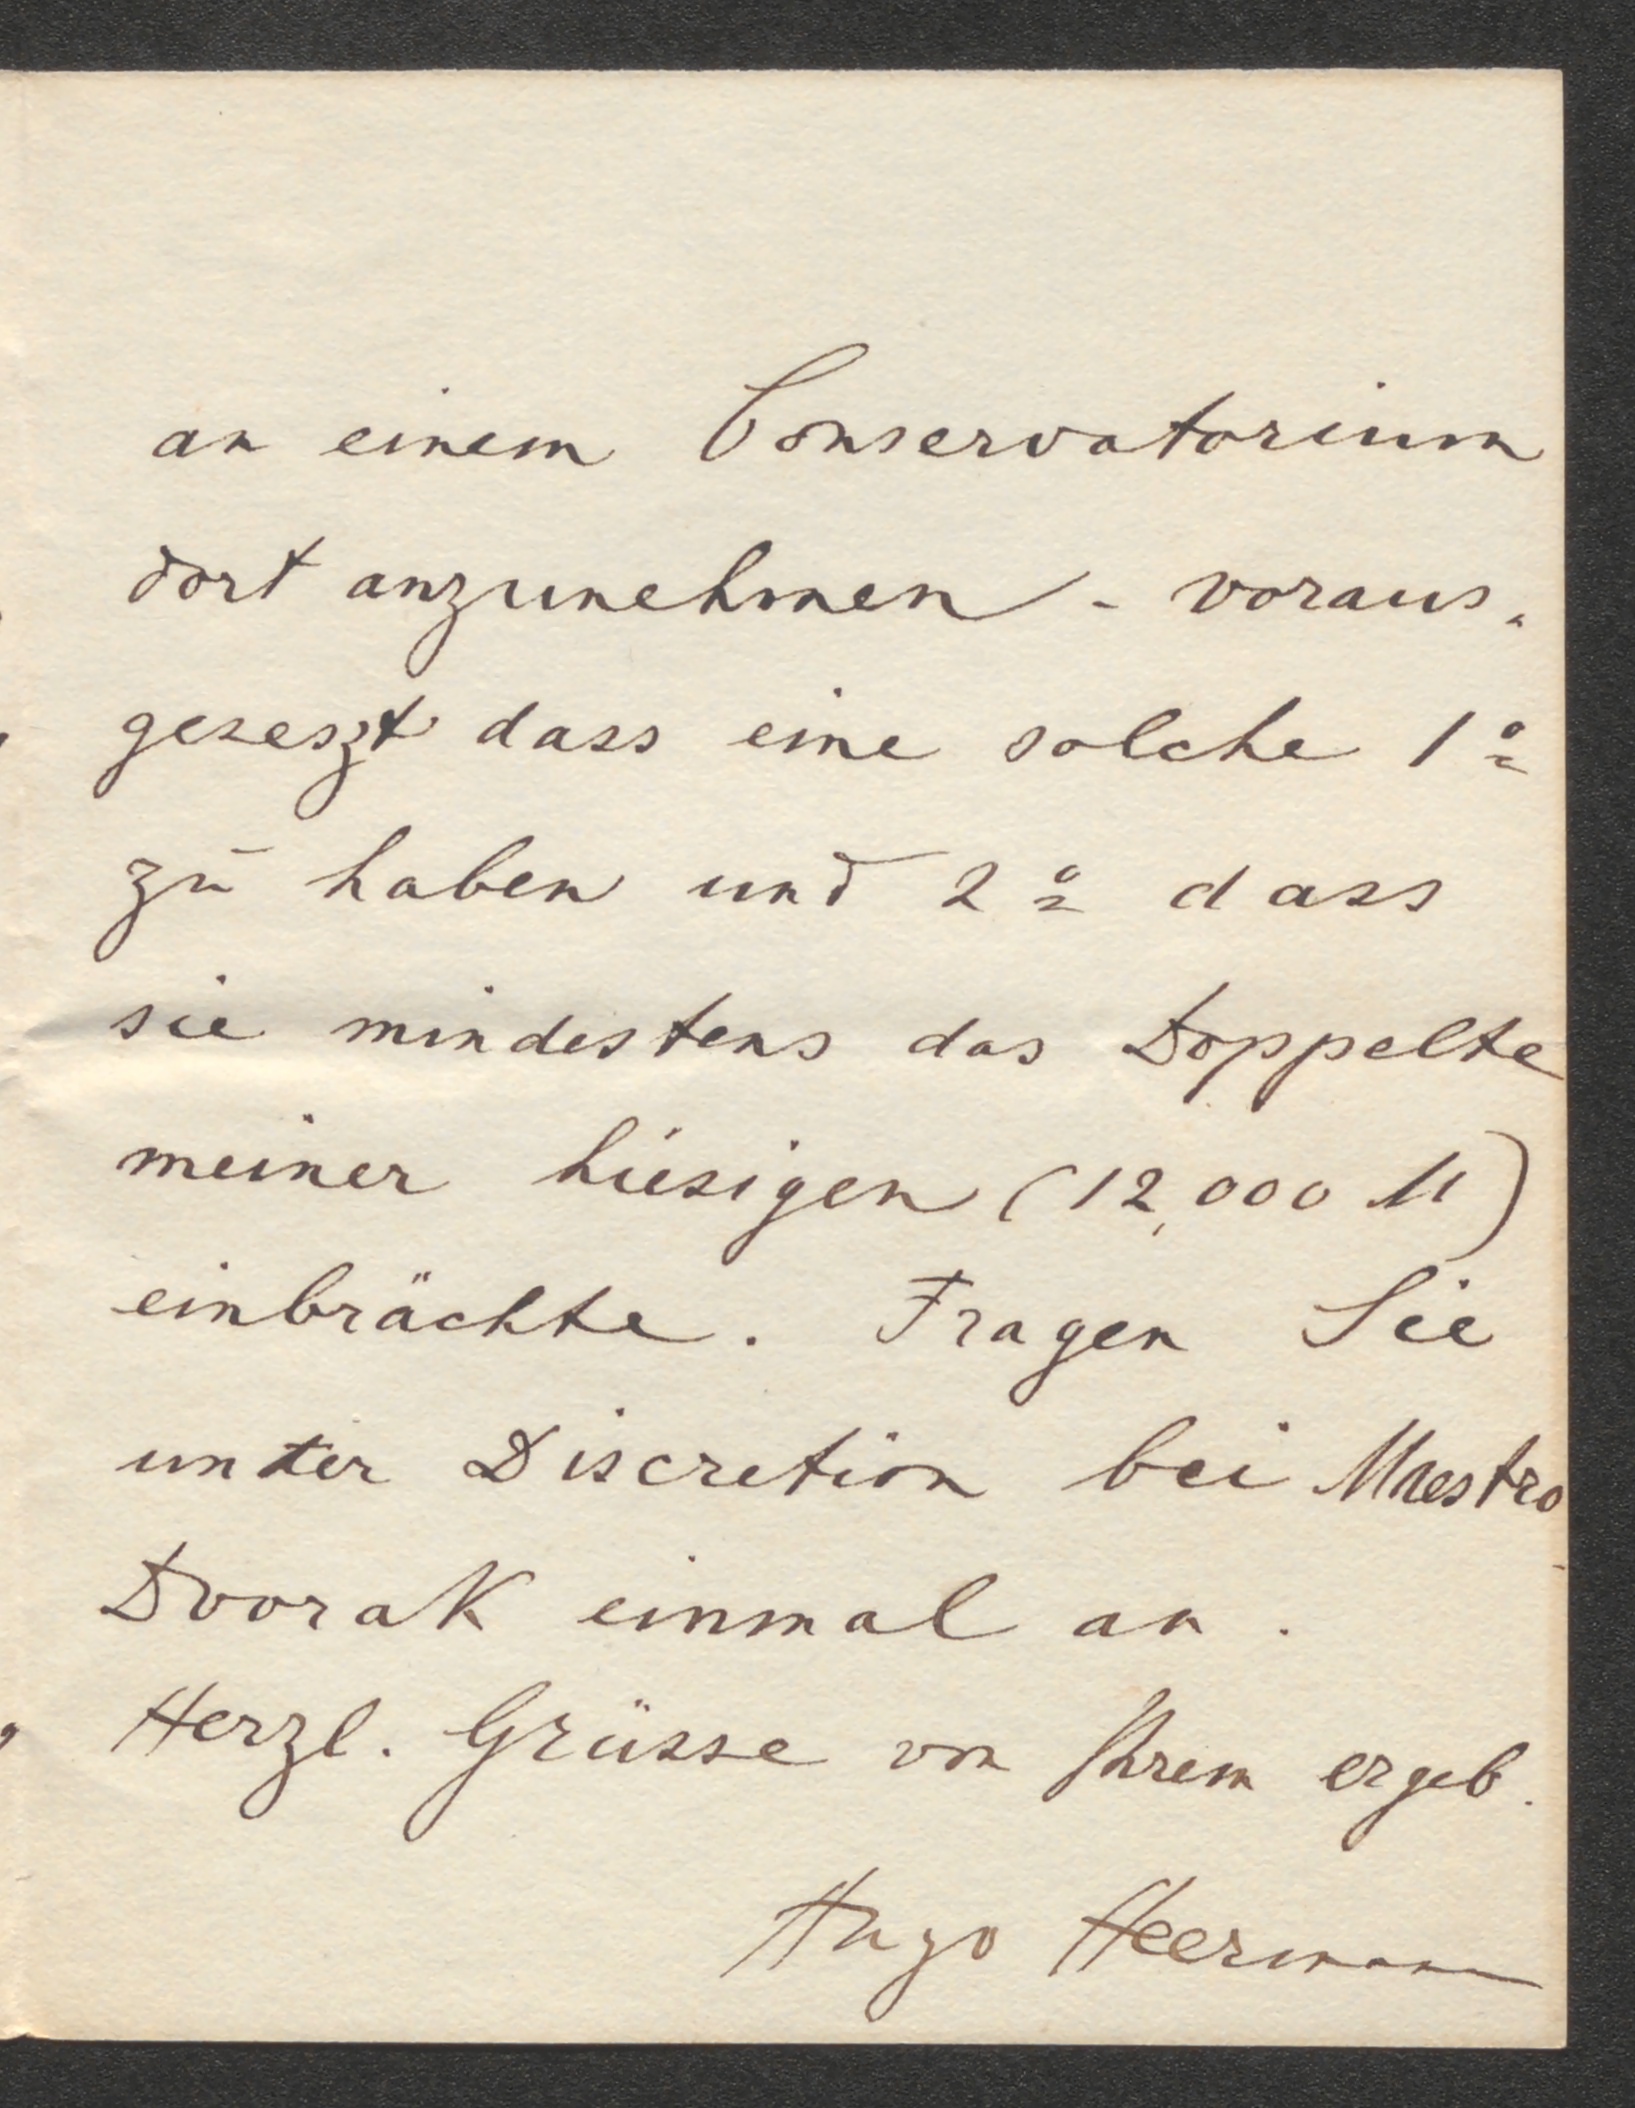 an einem Conservatorium
dort anzunehmen - voraus-
geseszt dass eine solche 1º
zu haben und 2º dass
sie mindestens das Doppelte
meiner hiesigen (12,000 M)
einbrächte. Fragen Sie
unter Discretion bei Maestro
Dvorak einmal an.
Herzl. Grüsse von Ihrem ergeb.
Hugo Heermann